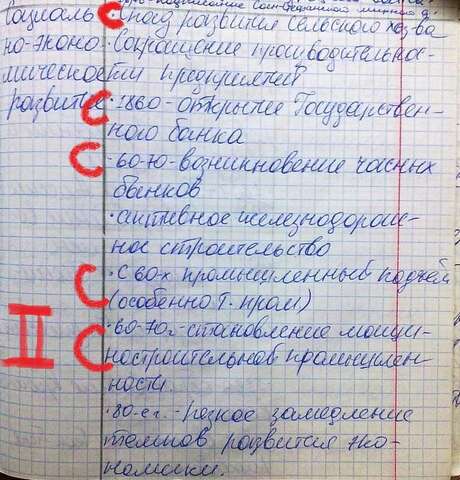 социаль С · Спад развития Сельского хоз-ва
но-эконо · Сокращение производительнос-
мическое ти предприятий
развитие С · 1860 - открытие Государствен-
ного банка
С · 60-ю - возникновение часных
банков
· активное железнодорож-
ное строительство
С · С 60-х промышленный подъём
(особенно т. пром)
II С · 60-70г - становление машин-
ностроительной промышлен-
ности.
· 80-е г. - резкое замедление
темпов развития эко-
номики.